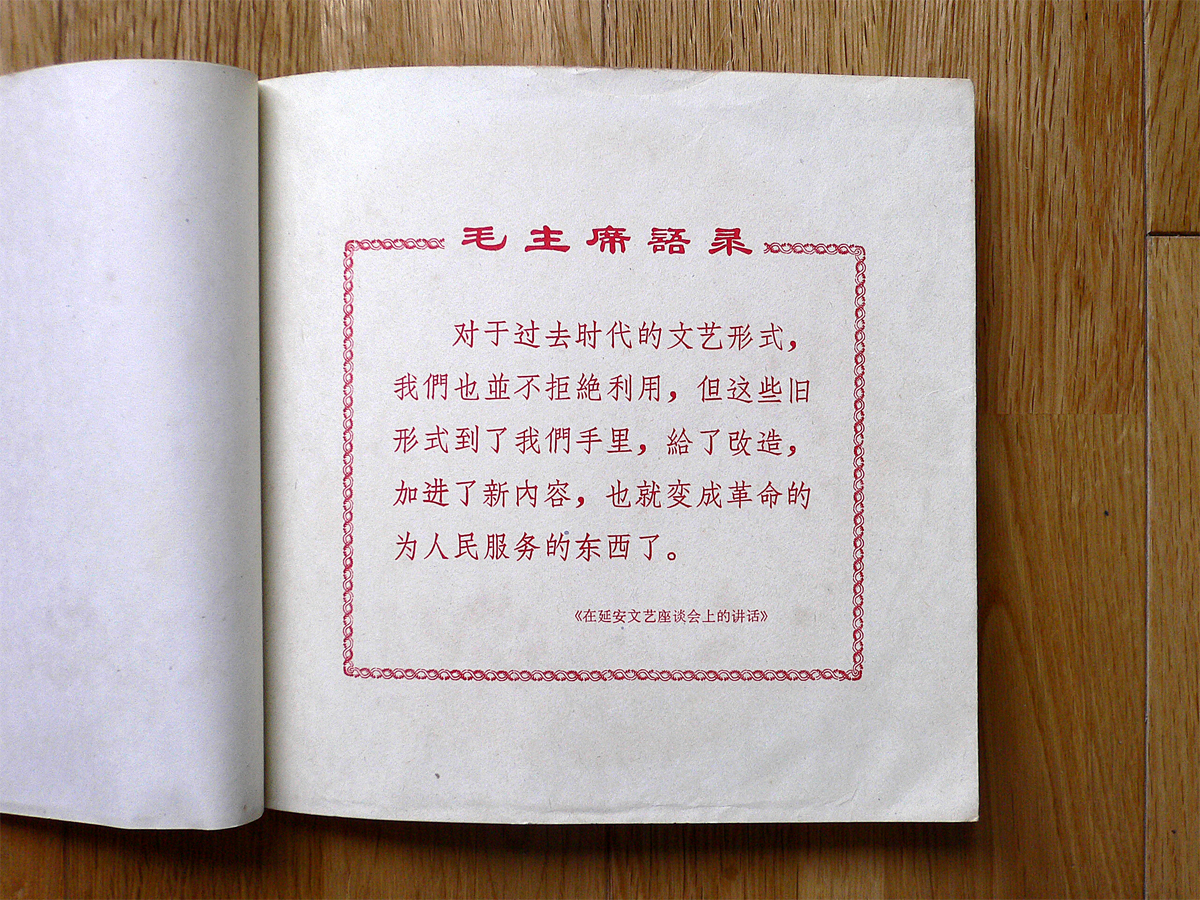 毛主席語录
对于过去时代的文艺形式，
我們也並不拒絶利用，但这些旧
形式到了我們手里，給了改造，
加进了新內容，也就变成革命的
为人民服务的东西了。
《在延安文艺座谈会上的讲话》